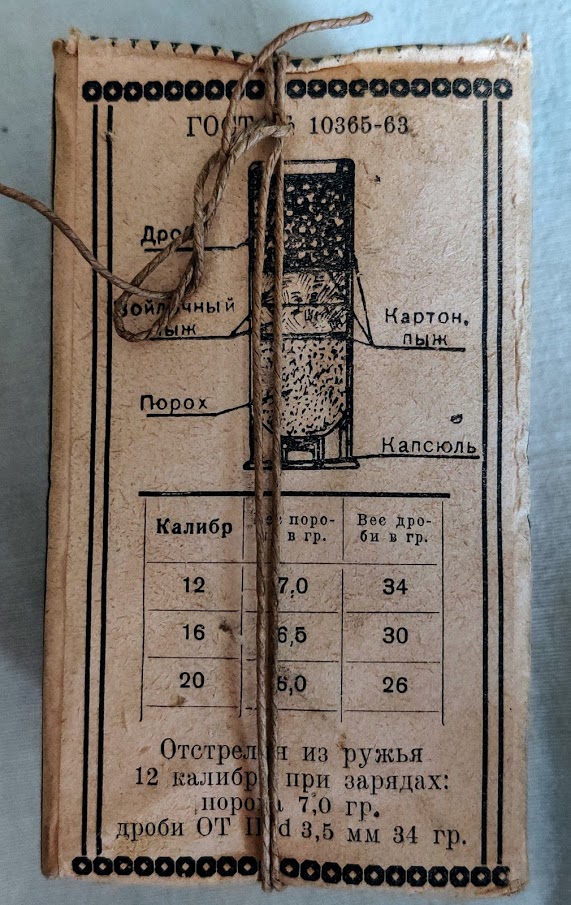 ГОСТ 10365-63
Дро
войлочный
пыж
Картон.
пыж
Порох
Капсюль
Калибр
Вес поро-
в гр.
Вес дро-
би в гр.
12 7,0 34
16 6,5 30
20 6,0 26
Отстрелян из ружья
12 калибр при зарядах:
пороха 7,0 гр.
дроби ОТ d 3,5 мм 34 гр.